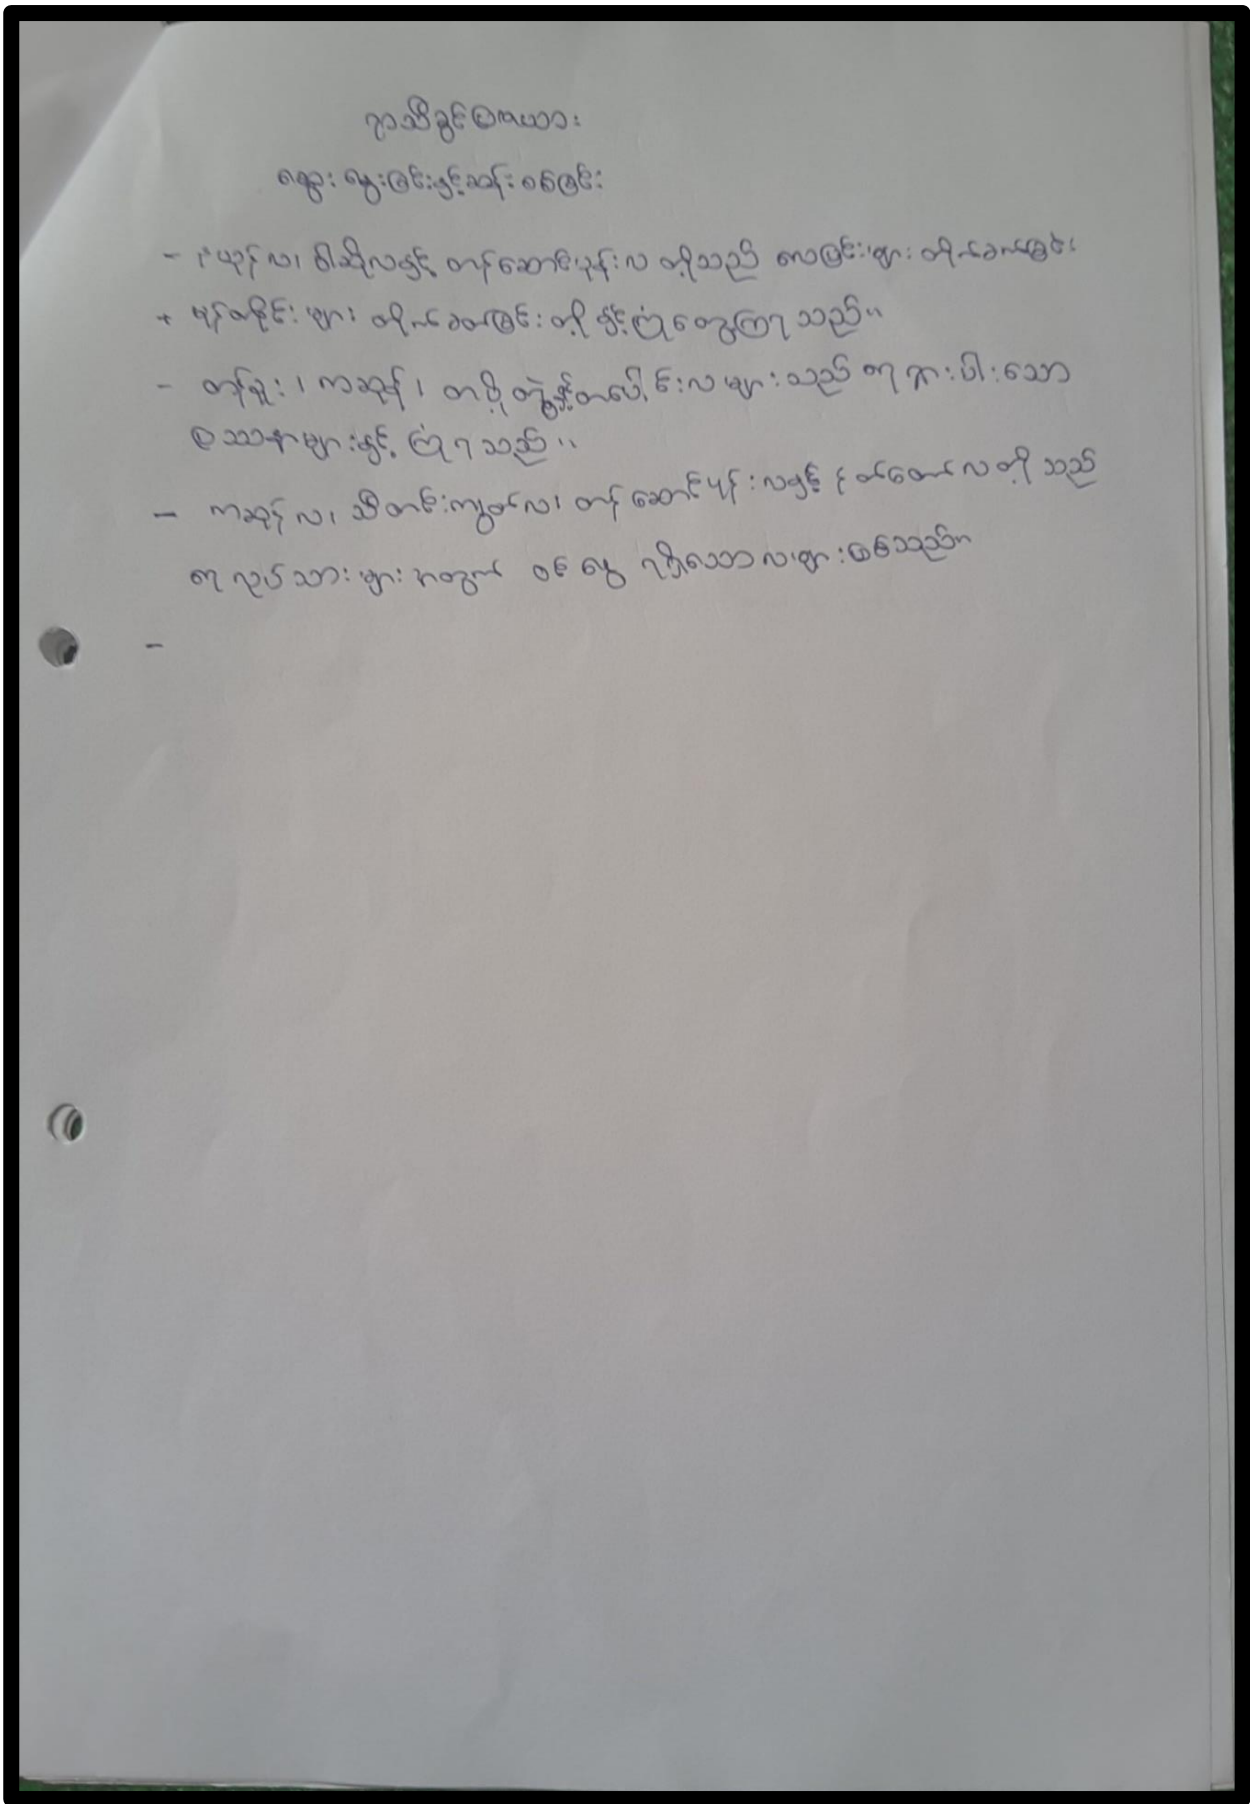 ရာသီခွင်ပြဇယား
ဆွေးနွေးခြင်းနှင့်ဆန်းစစ်ခြင်း
- နယုန်လ၊ ဝါဆိုလနှင့် တန်ဆောင်မုန်းလ တို့သည် လေပြင်းများ တိုက်ခတ်ခြင်း
+ မုန်တိုင်းများ တိုက်ခတ်ခြင်းတို့နှင့်ကြုံတွေ့ကြရသည်။
- တန်ခူး၊ ကဆုန်၊ တပို့တွဲနှင့်တပေါင်းလများသည် ရေရှားပါးသော
ပြဿနာများနှင့် ကြုံရသည်။
- ကဆုန်လ၊ သီတင်းကျွတ်လ၊ တန်ဆောင်မုန်းလနှင့် နတ်တော်လတို့သည်
ရေလုပ်သားများအတွက် ဝင်ငွေ ရရှိသောလများဖြစ်သည်။
-